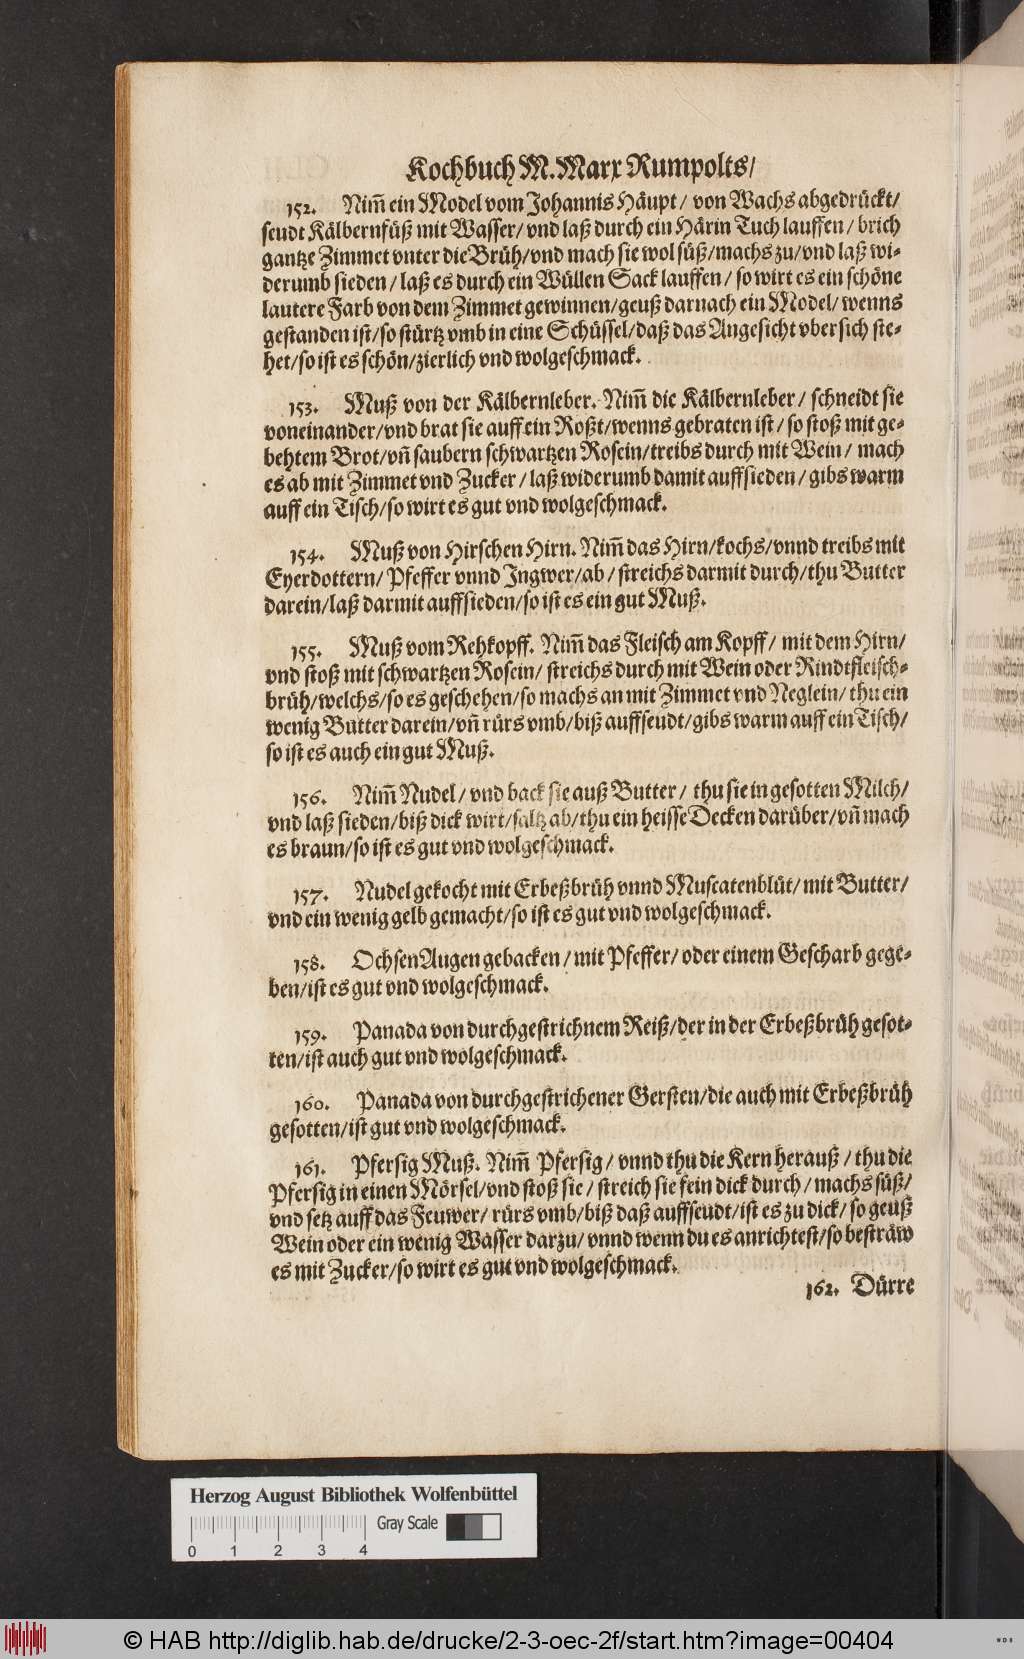 Kochbuch M. Marx Rumpolts/
152. Nim̃ ein Model vom Johannis Häupt / von Wachs abgedrückt/
seudt Kälbernfüß mit Wasser/ vnd laß durch ein Härin Tuch lauffen / brich
gantze Zimmet vnter die Brüh/vnd mach sie wol süß/machs zu/vnd laß wi-
derumb sieden / laß es durch ein Wüllen Sack lauffen / so wirt es ein schöne
lautere Farb von dem Zimmet gewinnen/geuß darnach ein Model/ wenns
gestanden ist/so stürtz vmb in eine Schüssel/daß das Angesicht vber sich ste-
het/so ist es schön/zierlich vnd wolgeschmack.
153. Muß von der Kälbernleber. Nim̃ die Kälbernleber / schneidt sie
voneinander/vnd brat sie auff ein Roßt/wenns gebraten ist / so stoß mit ge-
behtem Brot/vñ saubern schwartzen Rosein/treibs durch mit Wein / mach
es ab mit Zimmet vnd Zucker / laß widerumb damit auffsieden / gibs warm
auff ein Tisch/so wirt es gut vnd wolgeschmack.
154. Muß von Hirschen Hirn. Nim̃ das Hirn/kochs/vnnd treibs mit
Eyerdottern/ Pfeffer vnnd Jngwer/ab / streichs darmit durch/thu Butter
darein/laß darmit auffsieden/so ist es ein gut Muß.
155. Muß vom Rehkopff. Nim̃ das Fleisch am Kopff / mit dem Hirn/
vnd stoß mit schwartzen Rosein/ streichs durch mit Wein oder Rindtfleisch-
brüh/welchs/so es geschehen/so machs an mit Zimmet vnd Neglein/ thu ein
wenig Butter darein/vñ rürs vmb/biß auffseudt/gibs warm auff ein Tisch/
so ist es auch ein gut Muß.
156. Nim̃ Nudel / vnd back sie auß Butter / thu sie in gesotten Milch/
vnd laß sieden/biß dick wirt/saltz ab/thu ein heisse Decken darüber/vñ mach
es braun/so ist es gut vnd wolgeschmack.
157. Nudel gekocht mit Erbeßbrüh vnnd Muscatenblüt/ mit Butter/
vnd ein wenig gelb gemacht/so ist es gut vnd wolgeschmack.
158. Ochsen Augen gebacken / mit Pfeffer/ oder einem Gescharb gege-
ben/ist es gut vnd wolgeschmack.
159. Panada von durchgestrichnem Reiß/der in der Erbeßbrüh gesot-
ten/ist auch gut vnd wolgeschmack.
160. Panada von durchgestrichener Gersten/die auch mit Erbeßbrüh
gesotten/ist gut vnd wolgeschmack.
161. Pfersig Muß. Nim̃ Pfersig / vnnd thu die Kern herauß / thu die
Pfersig in einen Mörsel/vnd stoß sie / streich sie fein dick durch / machs süß/
vnd setz auff das Feuwer/ rürs vmb/biß daß auffseudt/ist es zu dick/ so geuß
Wein oder ein wenig Wasser darzu/ vnnd wenn du es anrichtest/so besträw
es mit Zucker/so wirt es gut vnd wolgeschmack.
162. Dürre
Herzog August Bibliothek Wolfenbüttel
Gray Scale
0 1 2 3 4
© HAB http://diglib.hab.de/drucke/2-3-oec-2f/start.htm?image=00404